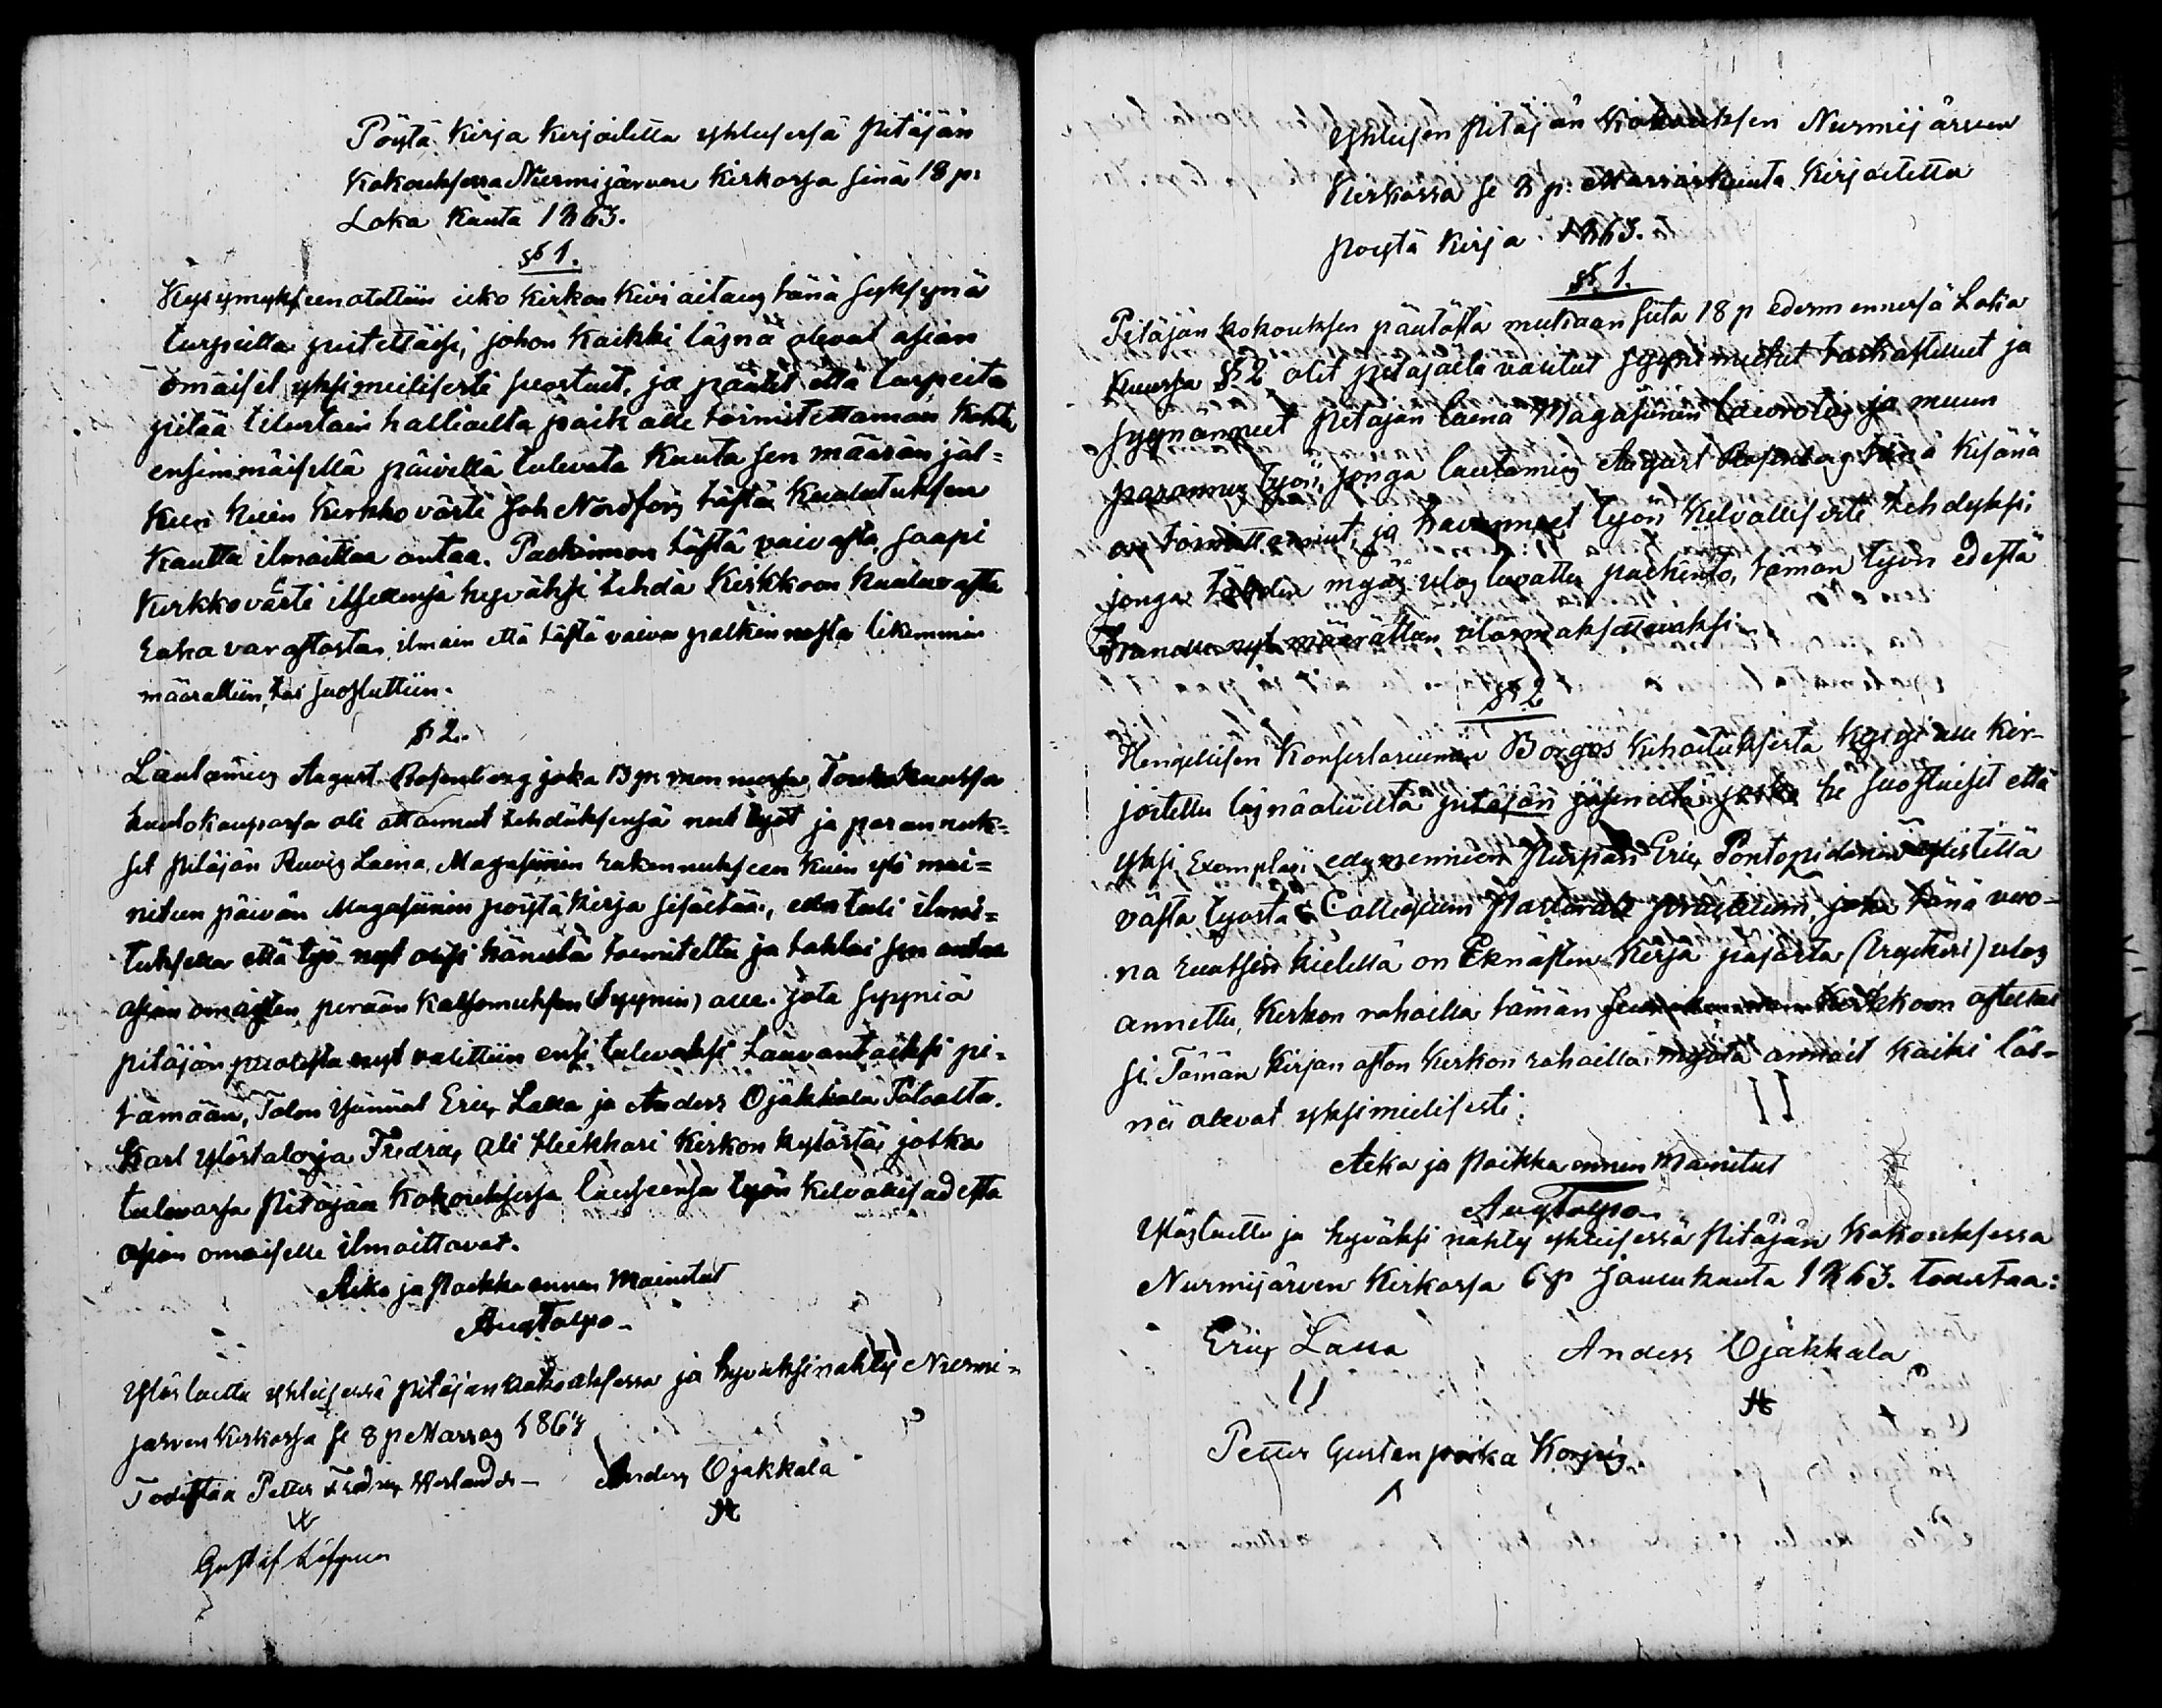 Pöytä Kirja Kirjoitettu yhteisesä Pitäjän
Kokouksessa Nurmijärven Kirkosa sinä 18 p:
Loka Kuuta 1863.
§ 1.
Kysymykseen otettiin eikö Kirkon Kivi aitaus tänä syksynä
turpeilla peitettäisi, johon Kaikki läsnä olevat asian
omaiset yksimielisesti suostuit, ja päätit että turpeita
pitää tilustain halltioilta paik alle toimitettaman Kohta
ensimmäisellä päivällä tulevata Kuuta sen määrän jäl-
keen kuin Kirkkovärti Joh Nordfors tästä Kuulutuksen
Kautta ilmoittaa antaa. Palkinnon tästä vaivasta, saapi
Kirkkovärti itsellensä hyväksi tehdä Kirkkoon kuuluvasta
raha varastosta, ilmain että tästä vaivan palkinnosta likemmin
määrättiin, tai suostuttiin.
§ 2.
Lautamies August Rosenberg joka 13 p: mennessä Touko Kuussa
huutokaupasa oli ottannut tehdäksensä ne työt ja parannuk-
set Pitäjän Ruvis Laina Magasiinin rakennukseen kuin ylö mai-
nitun päivän Magasiinin pöytäkirja sisältää, edes tuli ilmoi-
tuksella että työ nyt olisi häneltä toimitettu ja tahtoi sen antaa
asian omaisten perään katsomuksen (Syynin) alle. Jota syyniä
pitäjän puolesta nyt valittiin ensi tulevaksi lauvantaiksi pi-
tämään, Talon Isännät Eric Lalla ja Anders Ojakkala Paloalta.
Karl Ylöstalo ja Fredric Ali Heikkari Kirkon kylästä, jotka
tulevassa Pitäjän Kokouksessa lauseensa työn kelvollisudesta
asian omaiselle ilmoittavat.
Aika ja Paikka ennen Mainitut
Aug Talpo
Ylösluettu yhteisessä pitäjän kokouksessa ja hyväksi nähty Nurmi-
järven Kirkossa se 8 p Marras 1863
Todistaa Petter Fredric Anders Ojakkala
Gustaf Löfgren
Yhteisen Pitäjän Kokouksen Nurmijärven
Kirkossa se 8 p: Marraskuuta Kirjoitettu
Pöytä Kirja 1863.
§ 1.
Pitäjän kokouksen päätöstä mukaan siitä 18 p edesmennessä Loka
Kuussa § 2 olit pitäjältä valitut syyni miehet tarkastellut ja
syynänneet Pitäjän laina Magasiinin lauvotus ja muun
parannus työn, jonga lautamies August Rosenberg tänä kesänä
on toimittannut, ja havanneet työn kelvollisesti tehdyksi;
jonga tähden myös ulos luvattu palkinto, tämän työn edestä
hänelle nyt määrättin ulosmaksettavaksi.
§ 2
Hengellisen Konsistoriumin Borgos kehoituksesta kysyi alle kir-
joitettu läsnäolevilta pitäjän jäseniltä jos he suostuisit että
yksi Exemplari edesmennen Piispan Eric Pontopidanin ylistettä
västä työstä Collegium Pastorale practicum, joka tänä vuo-
na ruotsin kielellä on Eknästen Kirja pajasta (Trykeri) ulos
annettu, Kirkon rahoilla tämän Kirkkoon ostettai
si. Tämän Kirjan oston Kirkon rahoilla myötä annoit kaikki läs-
nä olevat yksimielisesti.
Aika ja Paikka ennen Mainitut
Aug Talpo
Ylösluettu ja hyväksi nähty yhteisessä Pitäjän Kokouksessa
Nurmijärven Kirkossa 6 p Joulukuuta 1863. todistaa:
Eric Lalla Anders Ojakkala
Petter Gustan poika